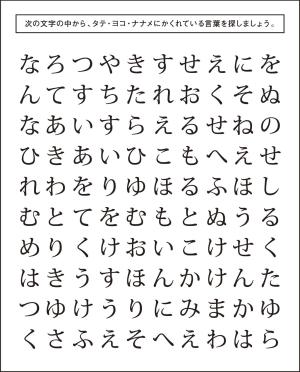 次の文字の中から、タテ・ヨコ・ナナメにかくれている言葉を探しましょう。
なろつやきすせえにを
んてすちたれおくそぬ
なあいすらえるせねの
ひきあいひこもへえせ
れわをりゆほるふほし
むとてをむもとぬうる
めりくけおいこけせく
はきうすほんかけんた
つゆけうりにみまかゆ
くさふえそへえわはら